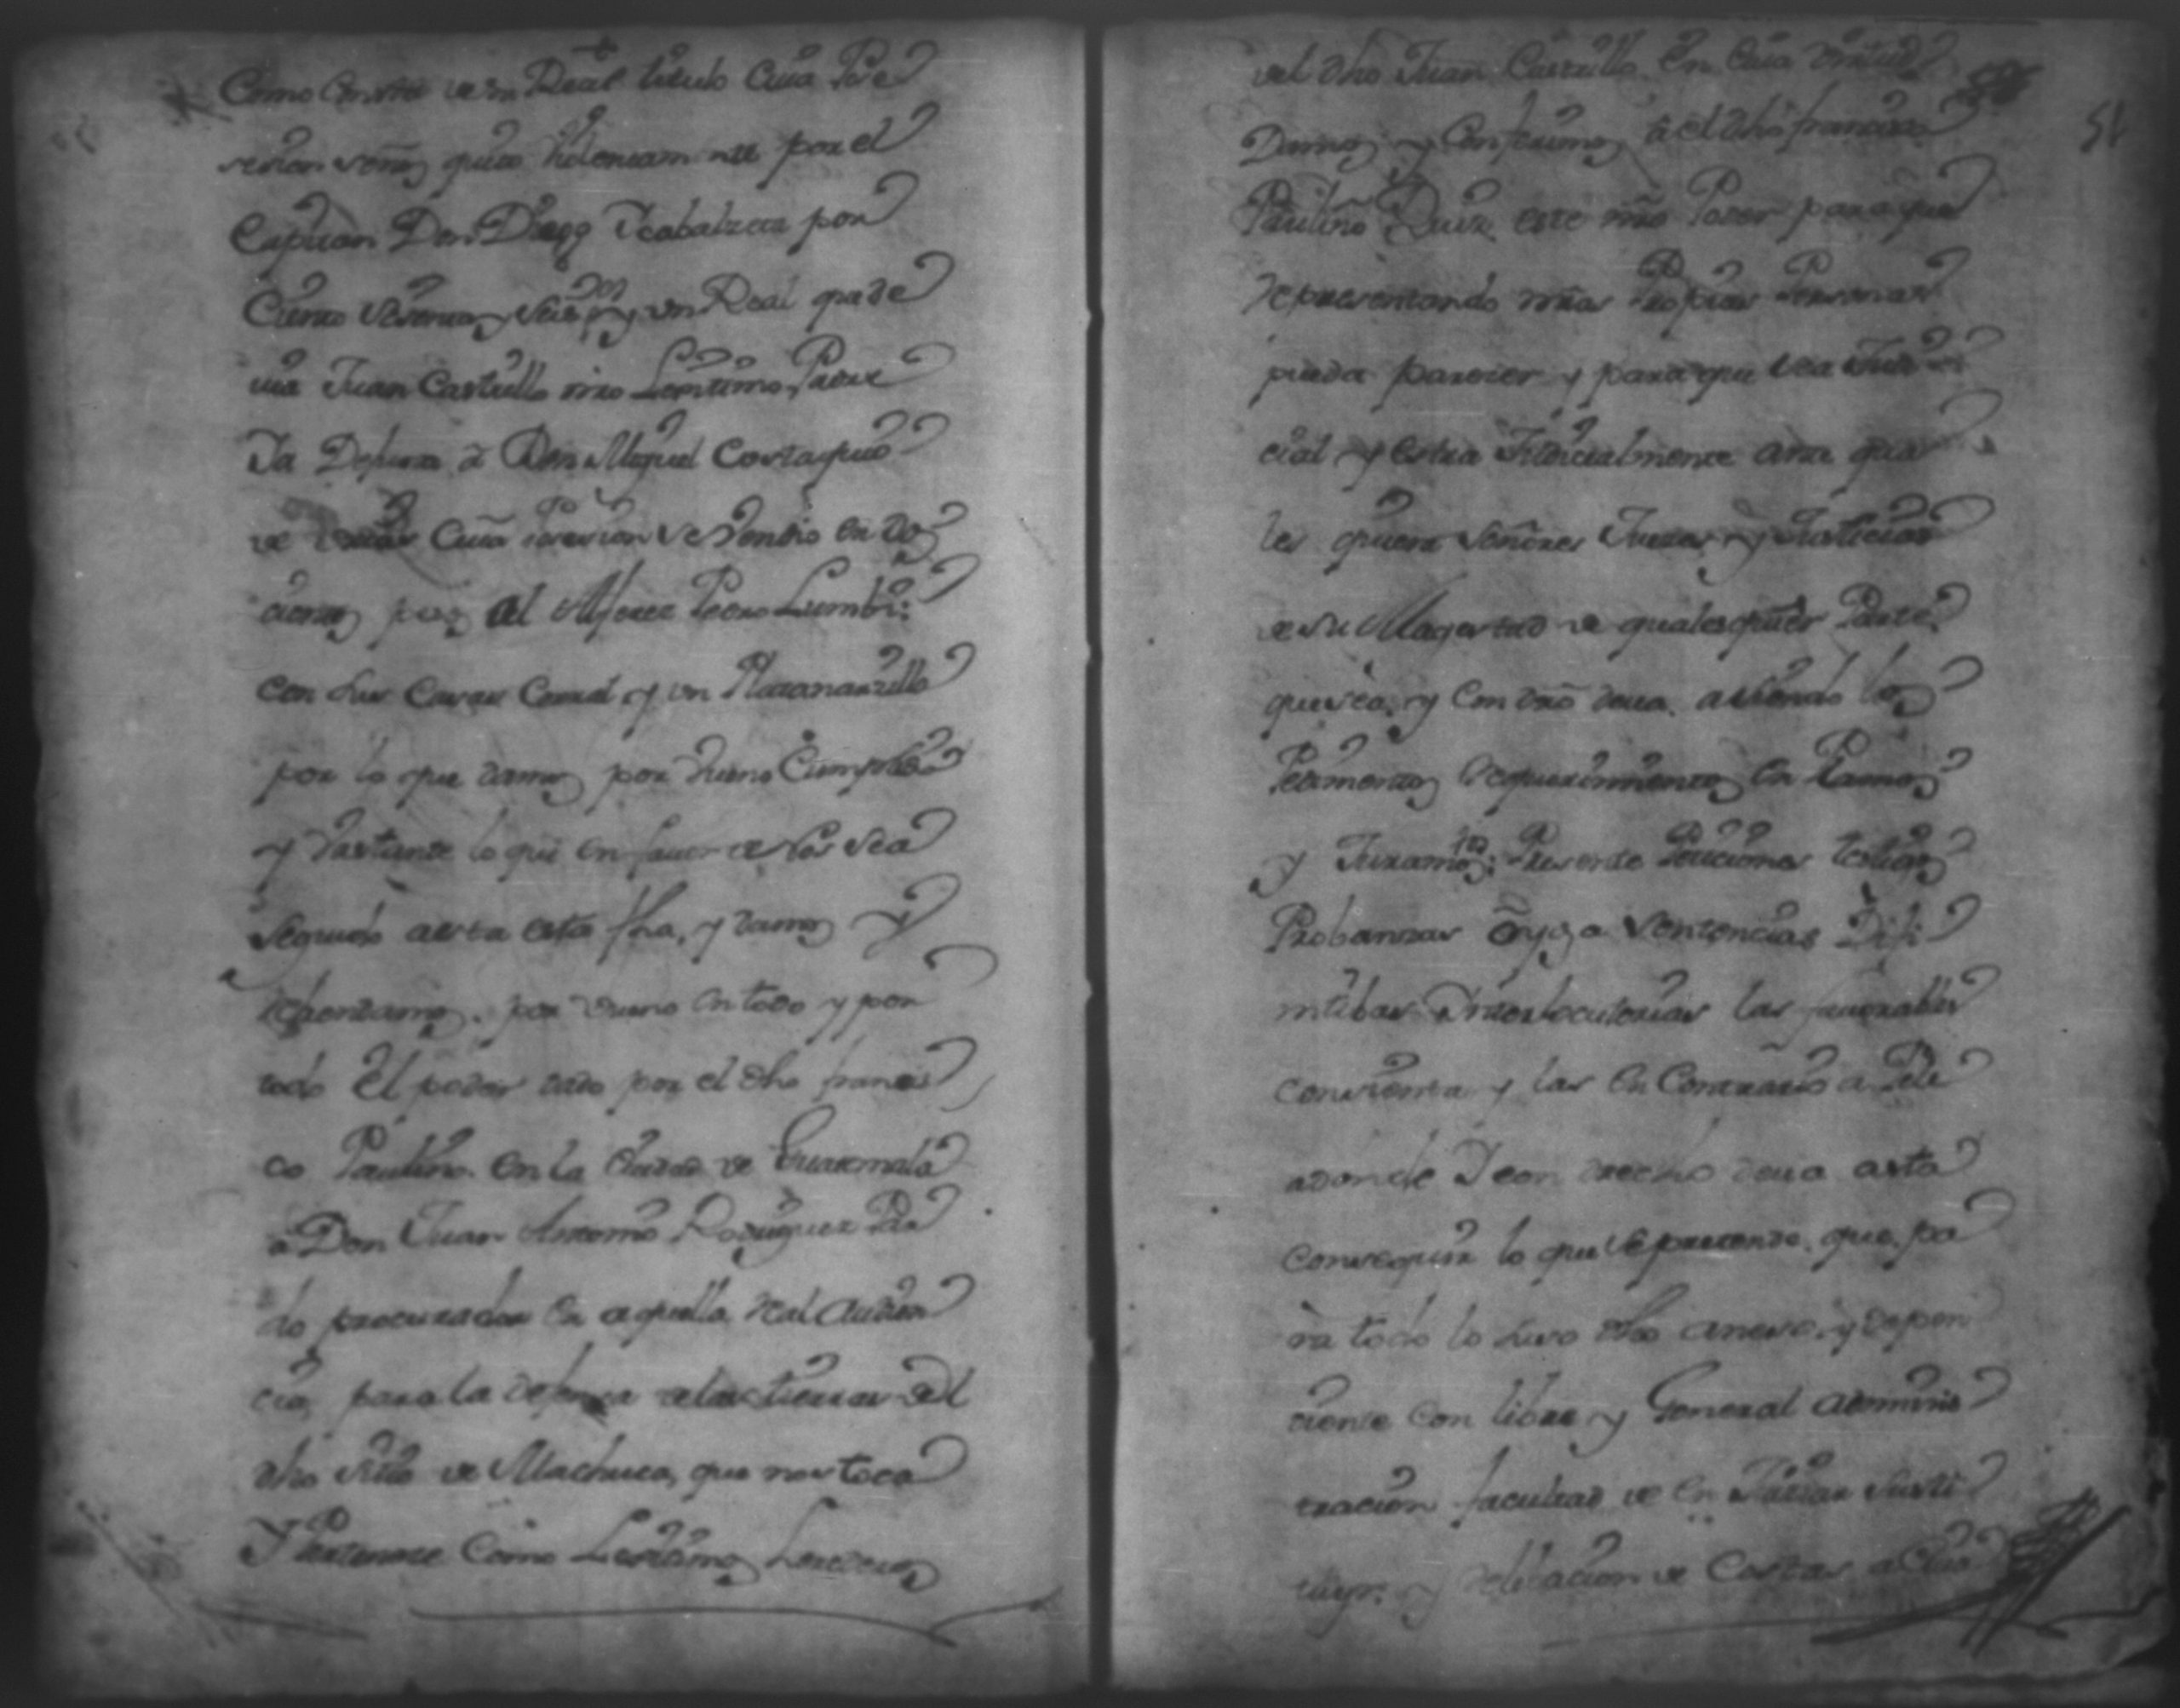 Como Consta de su Real titulo Cuia Pose
sesion señores quiso violentam.te por el
Capitan Don Diego por
Ciento sesenta y seis p.s y un Real que de
via Juan Castrillo nro Lexitimo Padre
Ya Defunto a Don Miguel
de Cuia posesion se vendio en dos
cientos pesos al Alferez Pedro
con sus Casas Corral y un Platanarzillo
por lo que damos por bueno Cumplido
y bastante lo que en favor de Nos sea
seguido asta esta fha, y damos y
por bueno en todo y por
todo El poder dado por el dho francis
co Paulino. en la Ciudad de Guatemala
a Don Juan Antonio Rodriguez
do procurador en aquella Real Audien
cia, para la defensa de las tierras del
dho sitio de Machuca, que nos toca
Y Pertenece Como Lexitimos herederos
del dho Juan Castrillo En Cuia Virtud
Damos y Conferimos a el dho francisco
Paulino Ruiz este nro Poder para que
Representando nras Propias Personas
pueda parecer y para que sea Judi
cial y extra Judicialmente ante qua
les quiera señores Juezes y Justicias
de su Magestad de qualesquier Parte
que sea, y Con dro deva. asiendo los
Pedimentos Requerimientos
y Juramtos: Presente Peticiones testigos
Probanzas Oyga sentencias Difi
nitibas Interlocutorias las favorables
consienta y las En Contrario a Pele
adonde Y con drecho deva asta
conseguir lo que se pretende. que pa
ra todo lo suso dho anexo, y depen
diente Con libre y General adminis
tracion facultad de En Juiziar susti
tuyr. y Relebacion de Costas a Cuia
51